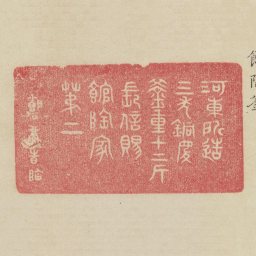 館陶釜
河東所造
三斗銅慶
釜重十二斤
長信賜
館陶家
第二